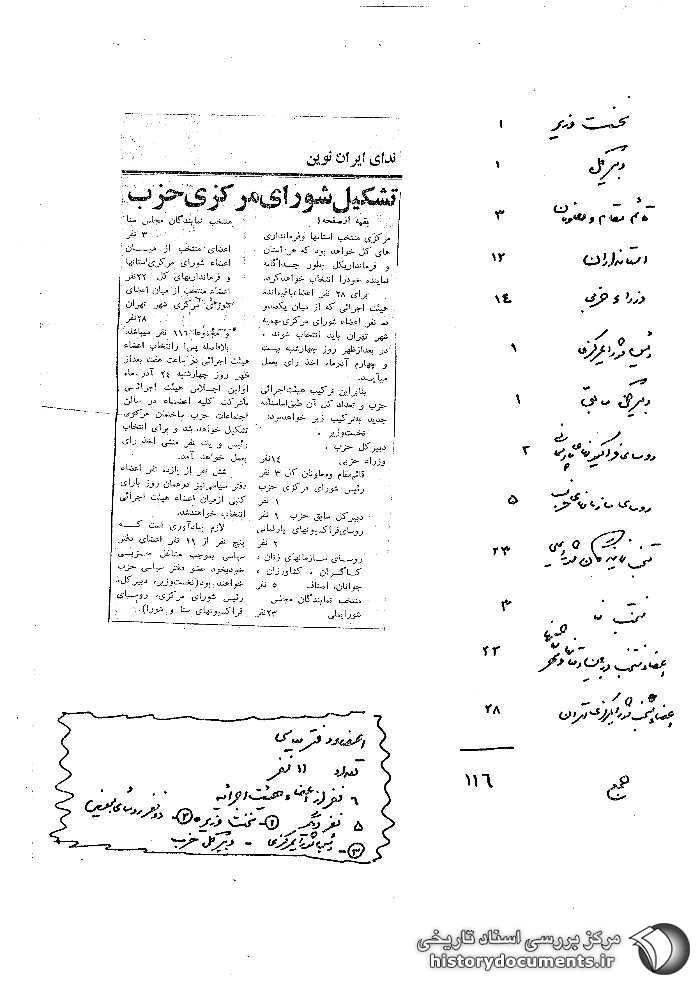 ندای ایران نوین
تشکیل شورای مرکزی حزب
بقیه از صفحه ۱
مرکزی منتخب استانها و فرمانداری
های کل خواهد بود که هر استان
و فرمانداریکل بطور جداگانه
نماینده خود را انتخاب خواهد کرد.
برای ۲۸ نفر اعضاء باقیمانده
هیئت اجرائی که از میان یکصد و
ده نفر اعضاء شورای مرکزی بهمیه
شهر تهران باید انتخاب شوند ،
در بعدازظهر روز چهارشنبه بیست
و چهارم آذرماه اخذ رای بعمل
میآید.
بنابراین ترکیب هیئت اجرائی
حزب و تعداد کل آن طبق اساسنامه
جدید به ترکیب زیر خواهد بود:
نخست وزیر ،
دبیر کل حزب ،
وزراء حزبی ۱۴ نفر
قائم مقام و معاونان کل ۳ نفر
رئیس شورای مرکزی حزب
۱ نفر
دبیر کل سابق حزب ۱ نفر
روسای فراکسیونهای پارلمانی
۲ نفر
روسای سازمانهای زنان ،
کارگران ، کشاورزان ،
جوانان، اصناف ۵ نفر
منتخب نمایندگان مجلس
شورایملی ۲۳ نفر
منتخب نمایندگان مجلس سنا
۳ نفر
اعضای منتخب از میان
اعضاء شورای مرکزی استانها
و فرمانداریهای کل ۲۲ نفر
اعضاء منتخب از میان اعضای
شورای مرکزی شهر تهران
۲۸ نفر
و مجموعا ۱۱۶ نفر میباشد.
بلافاصله پس از انتخاب اعضاء
هیئت اجرائی در ساعت هفت بعداز
ظهر روز چهارشنبه ۲۴ آذرماه
اولین اجلاس هیئت اجرائی
با شرکت کلیه اعضاء در سالن
اجتماعات حزب ساختمان مرکزی
تشکیل خواهد شد و برای انتخاب
رئیس و یک نفر منشی اخذ رای
بعمل خواهد آمد.
شش نفر از یازده نفر اعضاء
دفتر سیاسی نیز در همان روز با رای
کتبی از میان اعضاء هیئت اجرائی
انتخاب خواهند شد.
لازم بیادآوری است که
پنج نفر از ۱۱ نفر اعضای دفتر
سیاسی بموجب مشاغل حزبی
خود بخود عضو دفتر سیاسی حزب
خواهند بود (نخست وزیر، دبیر کل،
رئیس شورای مرکزی، روسای
فراکسیونهای سنا و شورا).
نخست وزیر ۱
دبیر کل ۱
قائم مقام و معاونان ۳
استانداران ۱۲
وزراء حزبی ۱۴
رئیس شورای مرکزی ۱
دبیر کل سابق ۱
روسای فراکسیونهای پارلمانی ۲
روسای سازمانهای حزب ۵
منتخب نمایندگان شورایملی ۲۳
منتخب سنا ۳
اعضاء منتخب در بین استانها و شهرستانها ۲۲
اعضاء منتخب شورای مرکزی تهران ۲۸
جمع ۱۱۶
اعضاء دفتر سیاسی
تعداد ۱۱ نفر
۶ نفر از اعضاء هیئت اجرائیه
۵ نفر دیگر ۱- نخست وزیر ۲- دو نفر روسای مجلسین
۳- رئیس شورای مرکزی - دبیر کل حزب
مرکز بررسی اسناد تاریخی
historydocuments.ir